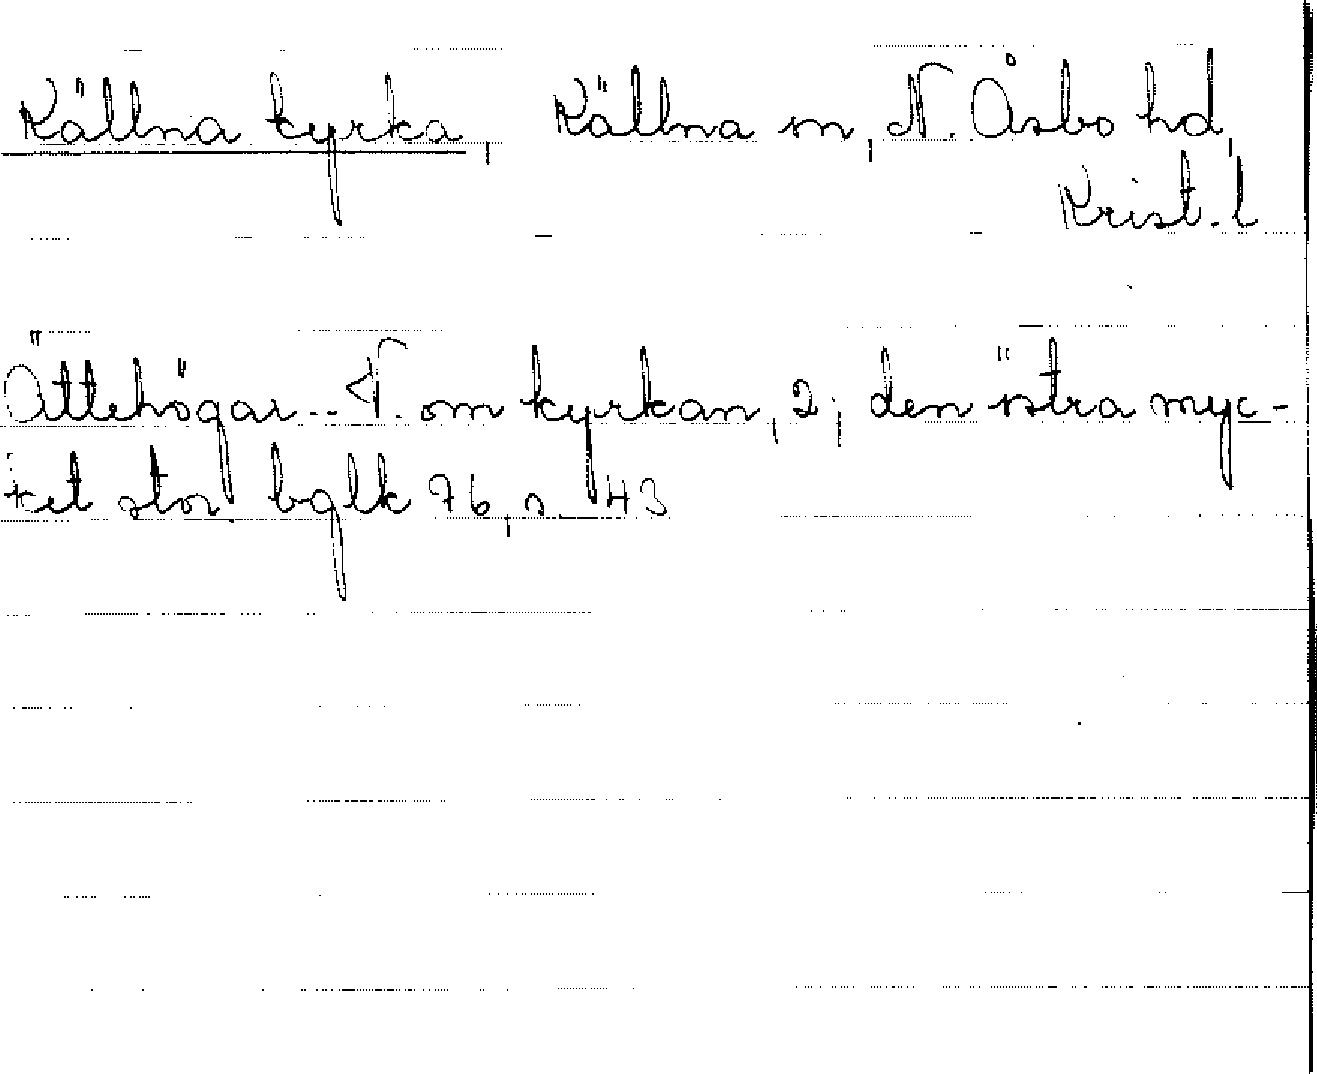 Källna kyrka, Källna sn, N. Åsbo hd,
Krist. l
Ättehögar... N. om kyrkan, 2; den östra myc-
ket stor bglk 76, s. 43